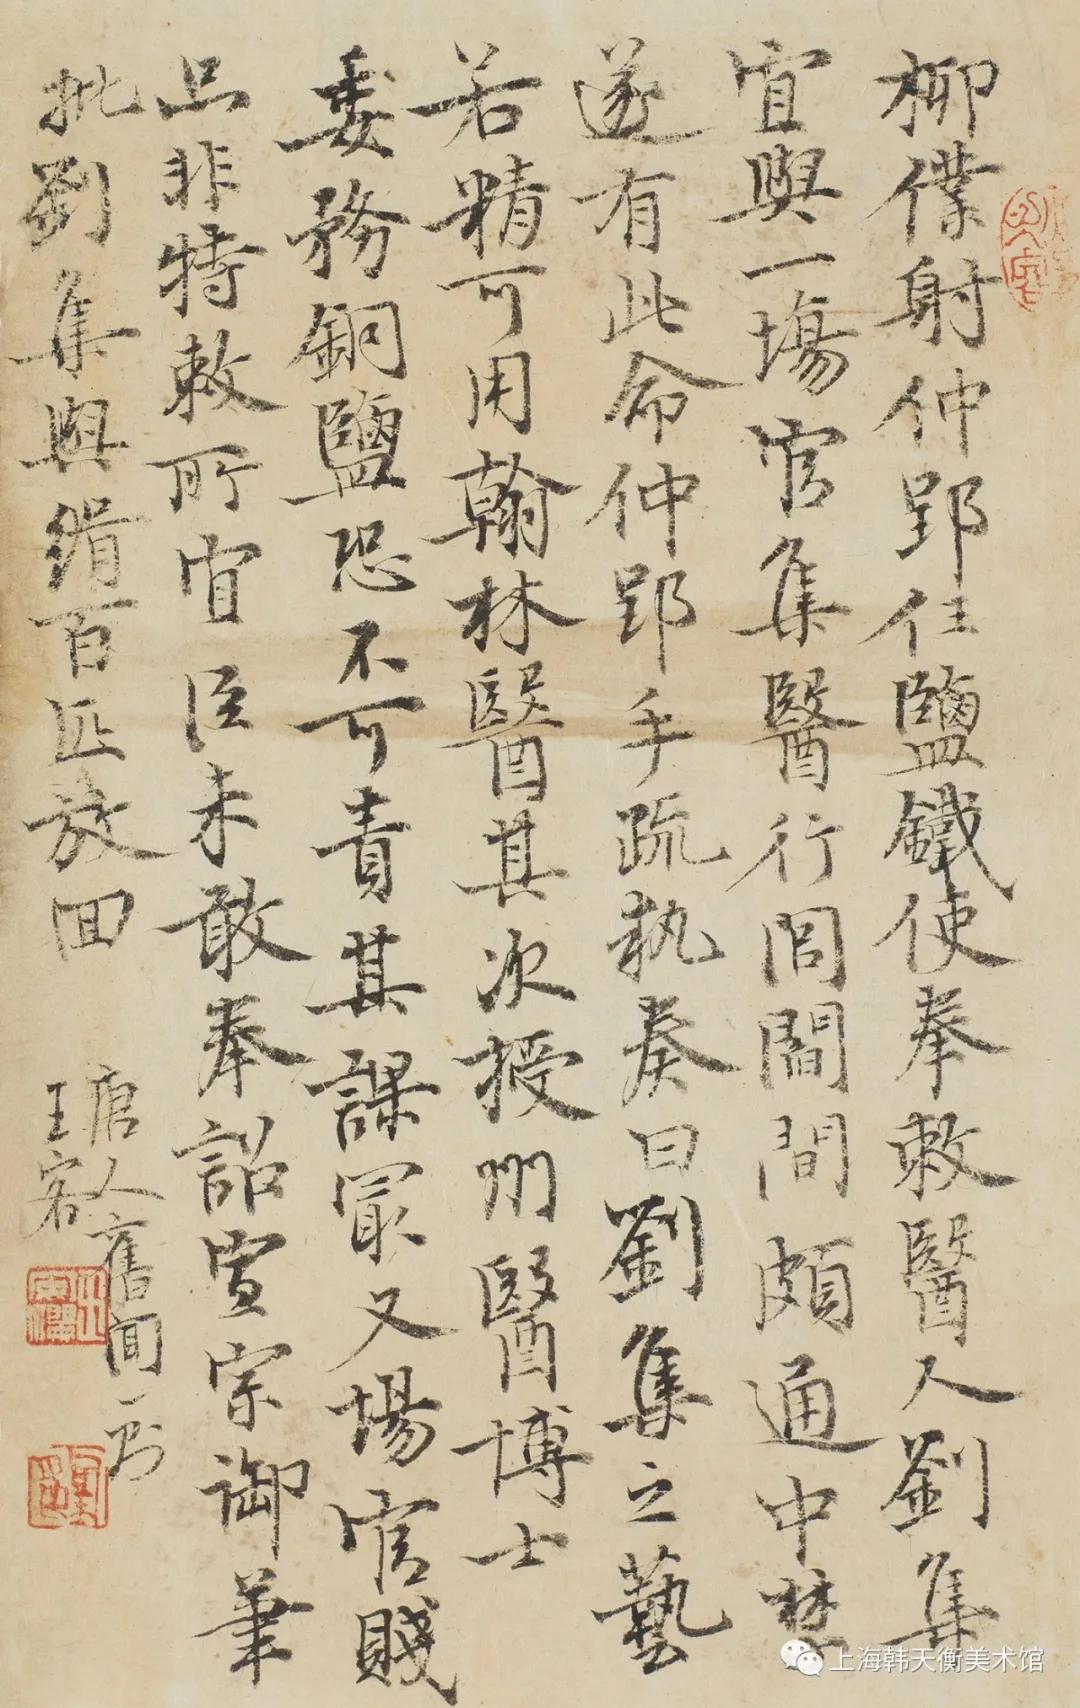 柳僕射仲郢任鹽鐵使奉敕醫人劉集
宜與一場官集醫行閭閻間頗通中禁
遂有此命仲郢手疏執奏曰劉集之藝
若精可用翰林醫其次授州醫博士
委務銅鹽恐不可責其課最又場官賤
品非特敕所宜臣未敢奉詔宣宗御筆
批劉集與絹百匹放回
唐人舊聞一則
王客
上海韩天衡美术馆